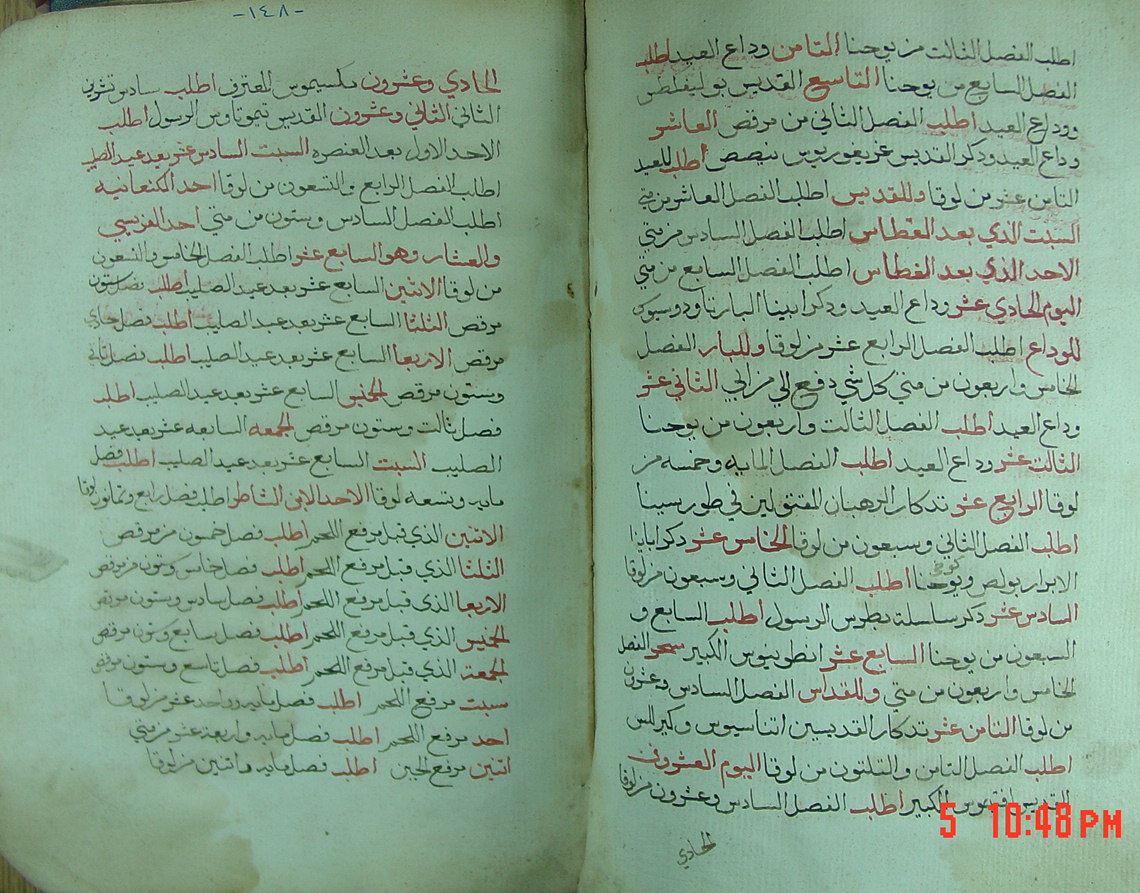 اطلب الفصل الثالت من يوحنا التامن وداع العيد اطلب
الفصل السابع من يوحنا التاسع القديس بوليفلطس
ووداع العيد اطلب الفصل التاني من مرقص العاشر
وداع العيد ودكر القديس غريغوريوس نيصص اطلب للعيد
التامن عشر من لوقا وللقديس اطلب الفصل العاشر من متي
السبت الدي بعد الغطاس اطلب الفصل السادس من متي
الاحد الدي بعد الغطاس اطلب الفصل السابع من متي
اليوم الحادي عشر وداع العيد ودكر ابينا البار تاودوسيوس
للوداع اطلب الفصل الرابع عشر من لوقا وللبار الفصل
الخامس واربعون من متي كل شي دفع الي من ابي التاني عشر
وداع العيد اطلب الفصل التالت واربعون من يوحنا
التالت عشر وداع العيد اطلب الفصل المايه وخمسه من
لوقا الرابع عشر تدكار الرهبان المقتولين في طور سينا
اطلب الفصل التاني وسبعون من لوقا الخامس عشر دكر اباينا
الابرار بولص ويوحنا اطلب الفصل التاني وسبعون من لوقا
السادس عشر دكر سلسلة بطرس الرسول اطلب السابع و
السبعون من يوحنا السابع عشر انطونيوس الكبير سحر الفصل
الخامس واربعون من متي وللقداس الفصل السادس وعشرون
من لوقا التامن عشر تدكار القديسين اتناسيوس وكيرللس
اطلب الفصل التامن والتلتون من لوقا اليوم العشرون
القديس افتيموس الكبير اطلب الفصل السادس وعشرون من لوقا
الحادي
5 10:48 PM
-١٤٨-
الحادي وعشرون مكسيموس المعترف اطلب سادس تشرين
التاني التاني وعشرون القديس تيموتاوس الرسول اطلب
الاحد الاول بعد العنصره السبت السادس عشر بعد عيد الصليب
اطلب الفصل الرابع والتسعون من لوقا احد الكنعانية
اطلب الفصل السادس وستون من متي احد الفريسي
والعشار وهو السابع عشر اطلب الفصل الخامس والتسعون
من لوقا الاتنين السابع عشر بعد عيد الصليب اطلب فصل ستون
مرقص التلتا السابع عشر بعد عيد الصليب اطلب فصل حادي
مرقص الاربعا السابع عشر بعد عيد الصليب اطلب فصل تاني
وستون مرقص الخميس السابع عشر بعد عيد الصليب اطلب
فصل تالت وستون مرقص الجمعه السابعه عشر بعد عيد
الصليب السبت السابع عشر بعد عيد الصليب اطلب فصل
مايه وتسعه لوقا الاحد الابن الشاطر اطلب فصل رابع وتمانون لوقا
الاتنين الذي قبل مرفع اللحم اطلب فصل خمسون من مرقص
التلتا الذي قبل مرفع اللحم اطلب فصل خامس وستون من مرقص
الاربعا الذي قبل مرفع اللحم اطلب فصل سادس وستون مرقص
الخميس الذي قبل مرفع اللحم اطلب فصل سابع وستون مرقص
الجمعة الذي قبل مرفع اللحم اطلب فصل تاسع وستون مرقص
سبت مرفع اللحم اطلب فصل مايه وواحد عشر من لوقا
احد مرفع اللحم اطلب فصل مايه واربعة عشر من متي
اتنين مرفع الجبن اطلب فصل مايه واتنين من لوقا